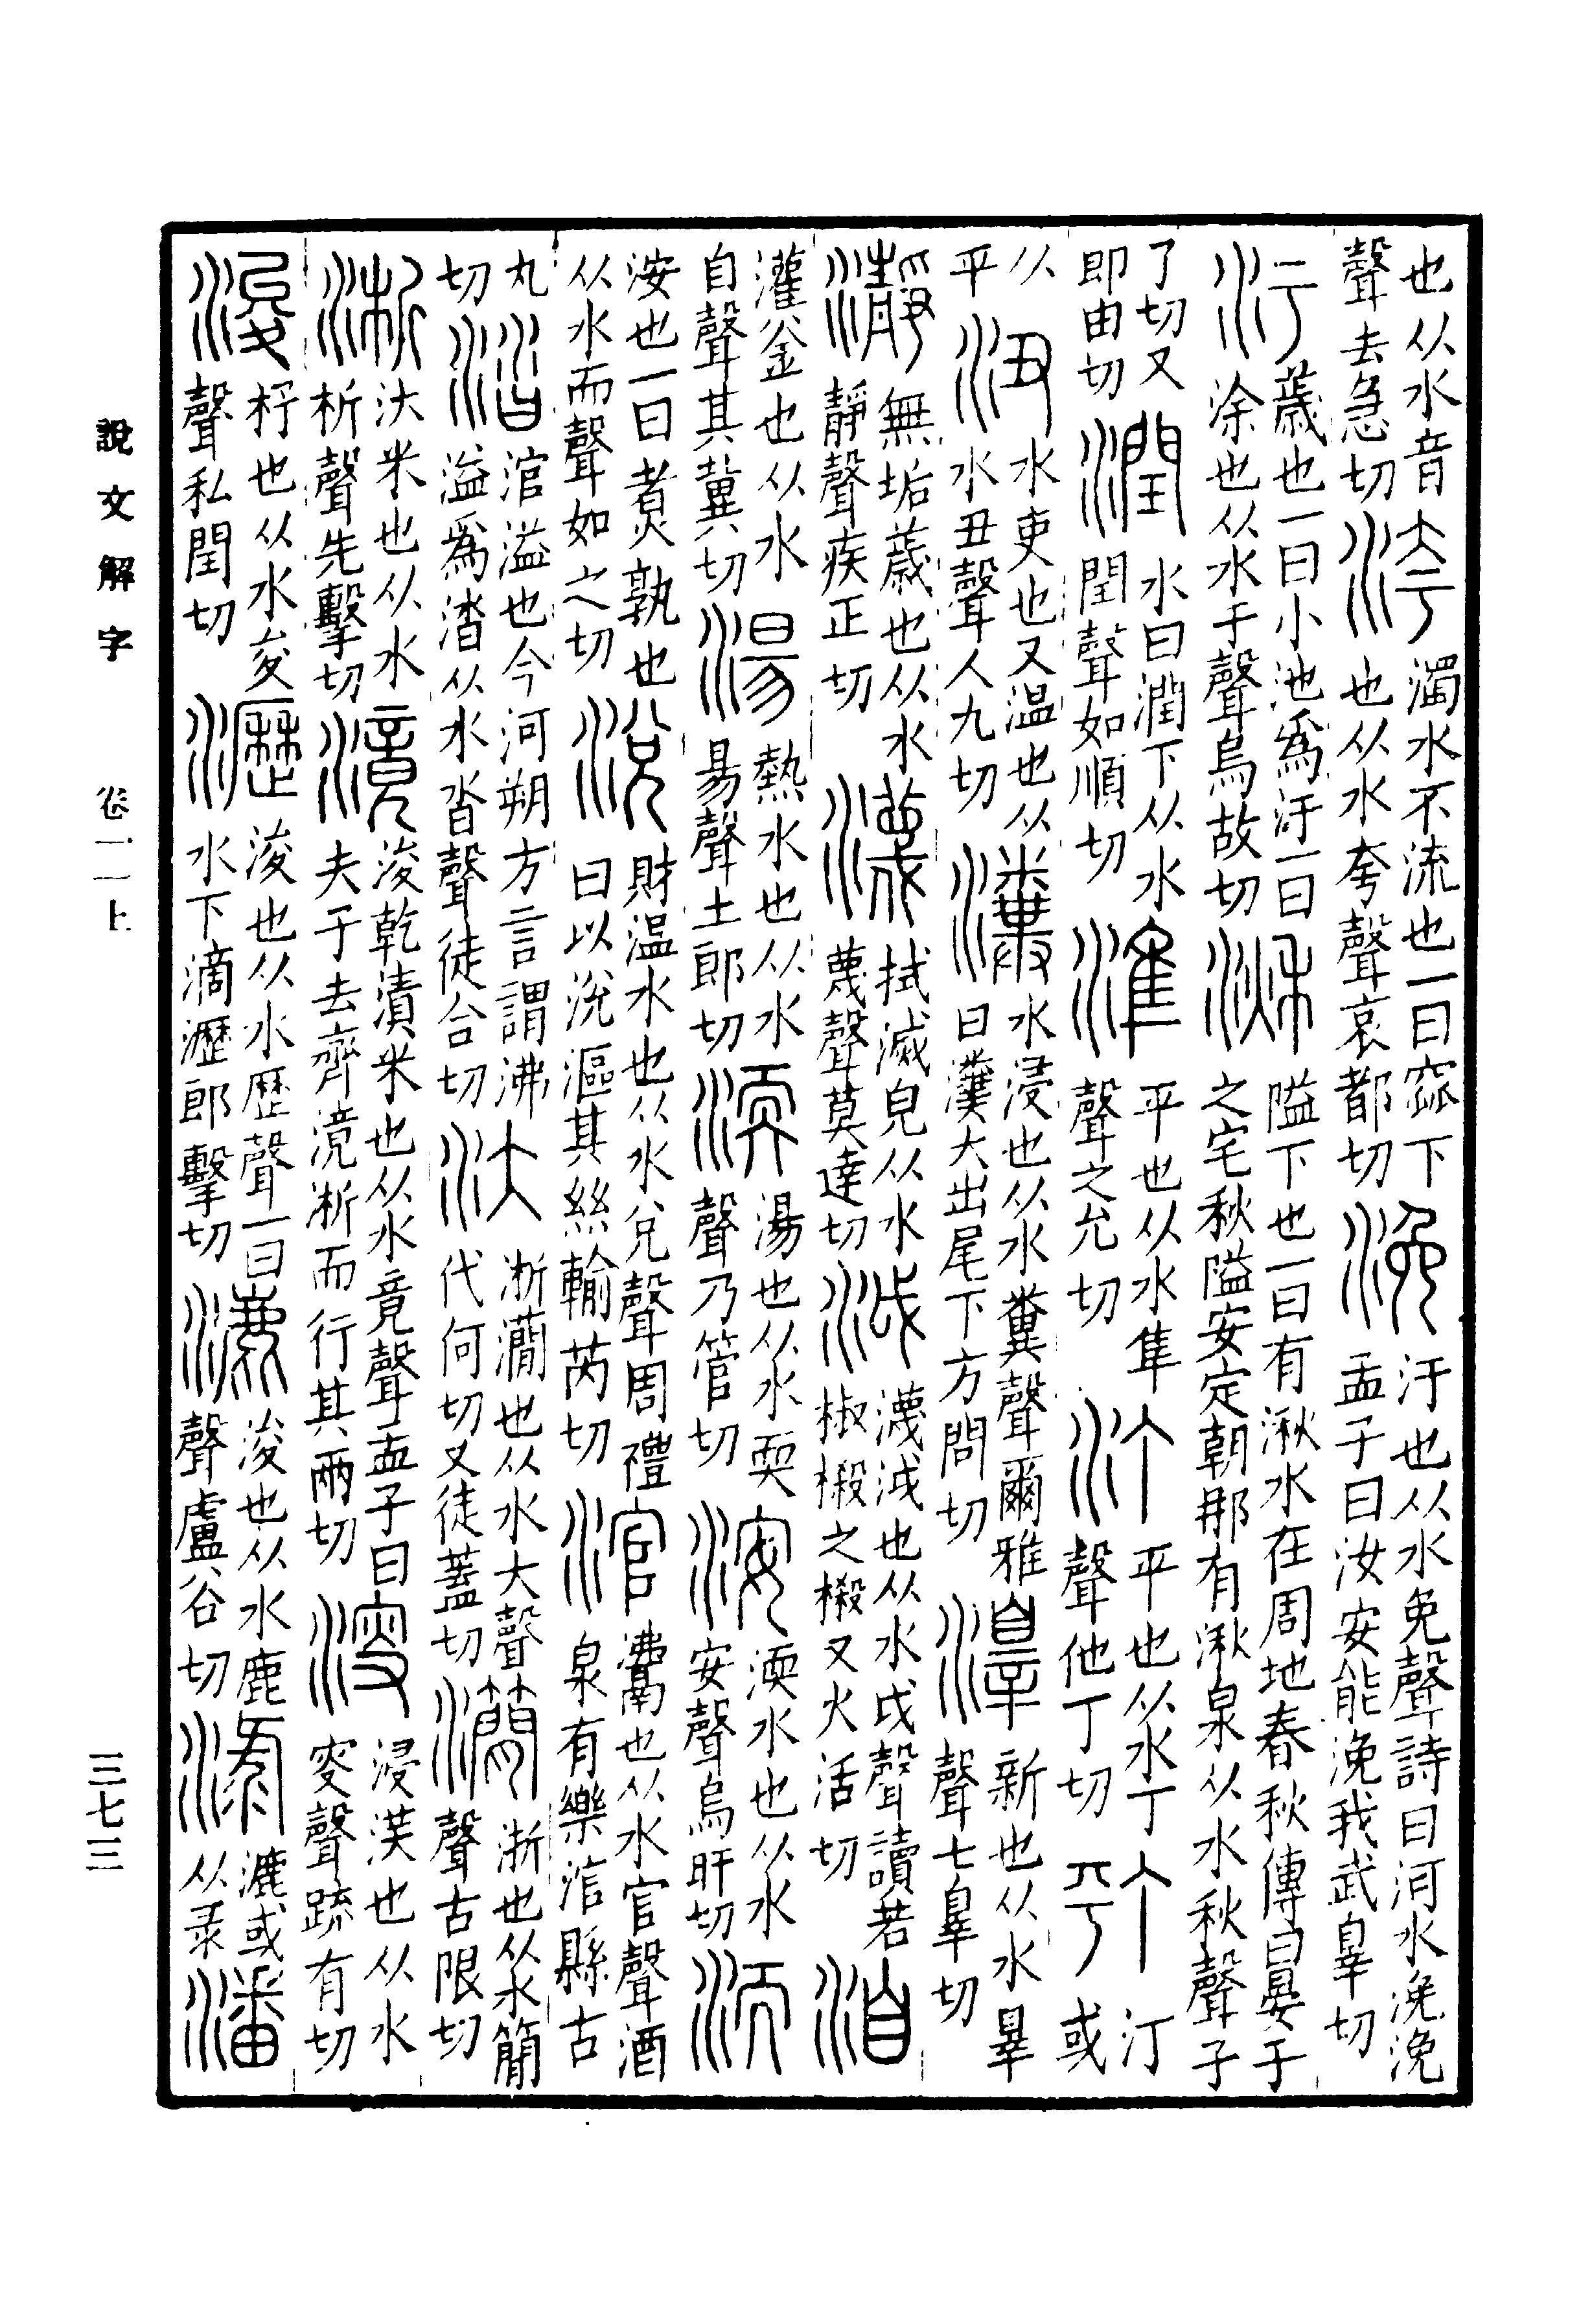 也从水音聲去急切 洿 濁水不流也一曰窊下也从水夸聲哀都切 浼 汙也从水免聲詩曰河水浼浼孟子曰汝安能浼我武辠切
汙 薉也一曰小池爲汙一曰涂也从水于聲烏故切 湫 隘下也一曰有湫水在周地春秋傳曰晏子之宅秋隘安定朝那有湫泉从水秋聲子
了切又即由切 潤 水曰潤下从水閏聲如順切 準 平也从水隼聲之允切 汀 平也从水丁聲他丁切 汀或
从平 沑 水吏也又温也从水丑聲人九切 瀵 水浸也从水糞聲爾雅曰瀵大出尾下方問切 新也从水辠聲七辠切
瀞 無垢薉也从水靜聲疾正切 瀎 拭滅皃从水蔑聲莫達切 泧 瀎泧也从水戉聲讀若椒樧之樧又火活切 洎
灌釜也从水自聲其冀切 湯 熱水也从水昜聲土郎切 渜 湯也从水耎聲乃管切 洝 渜水也从水安聲烏旰切 洏
洝也一曰煑孰也从水而聲如之切 涗 財温水也从水兌聲周禮曰以涗漚其絲輸芮切 涫 也从水官聲酒泉有樂涫縣古
丸切 涾 涫溢也今河朔方言謂沸溢爲涾从水沓聲徒合切 汏 淅㶕也从水大聲代何切又徒蓋切 㶕 淅也从水簡聲古限切
淅 汏米也从水析聲先擊切 滰 浚乾漬米也从水竟聲孟子曰夫子去齊滰淅而行其兩切 溲 浸也从水叜聲疏有切
浚 杼也从水夋聲私閏切 瀝 浚也从水歷聲一曰水下滴瀝郎擊切 漉 浚也从水鹿聲盧谷切 渌 漉或从录 潘
說文解字 卷一一上 三七三